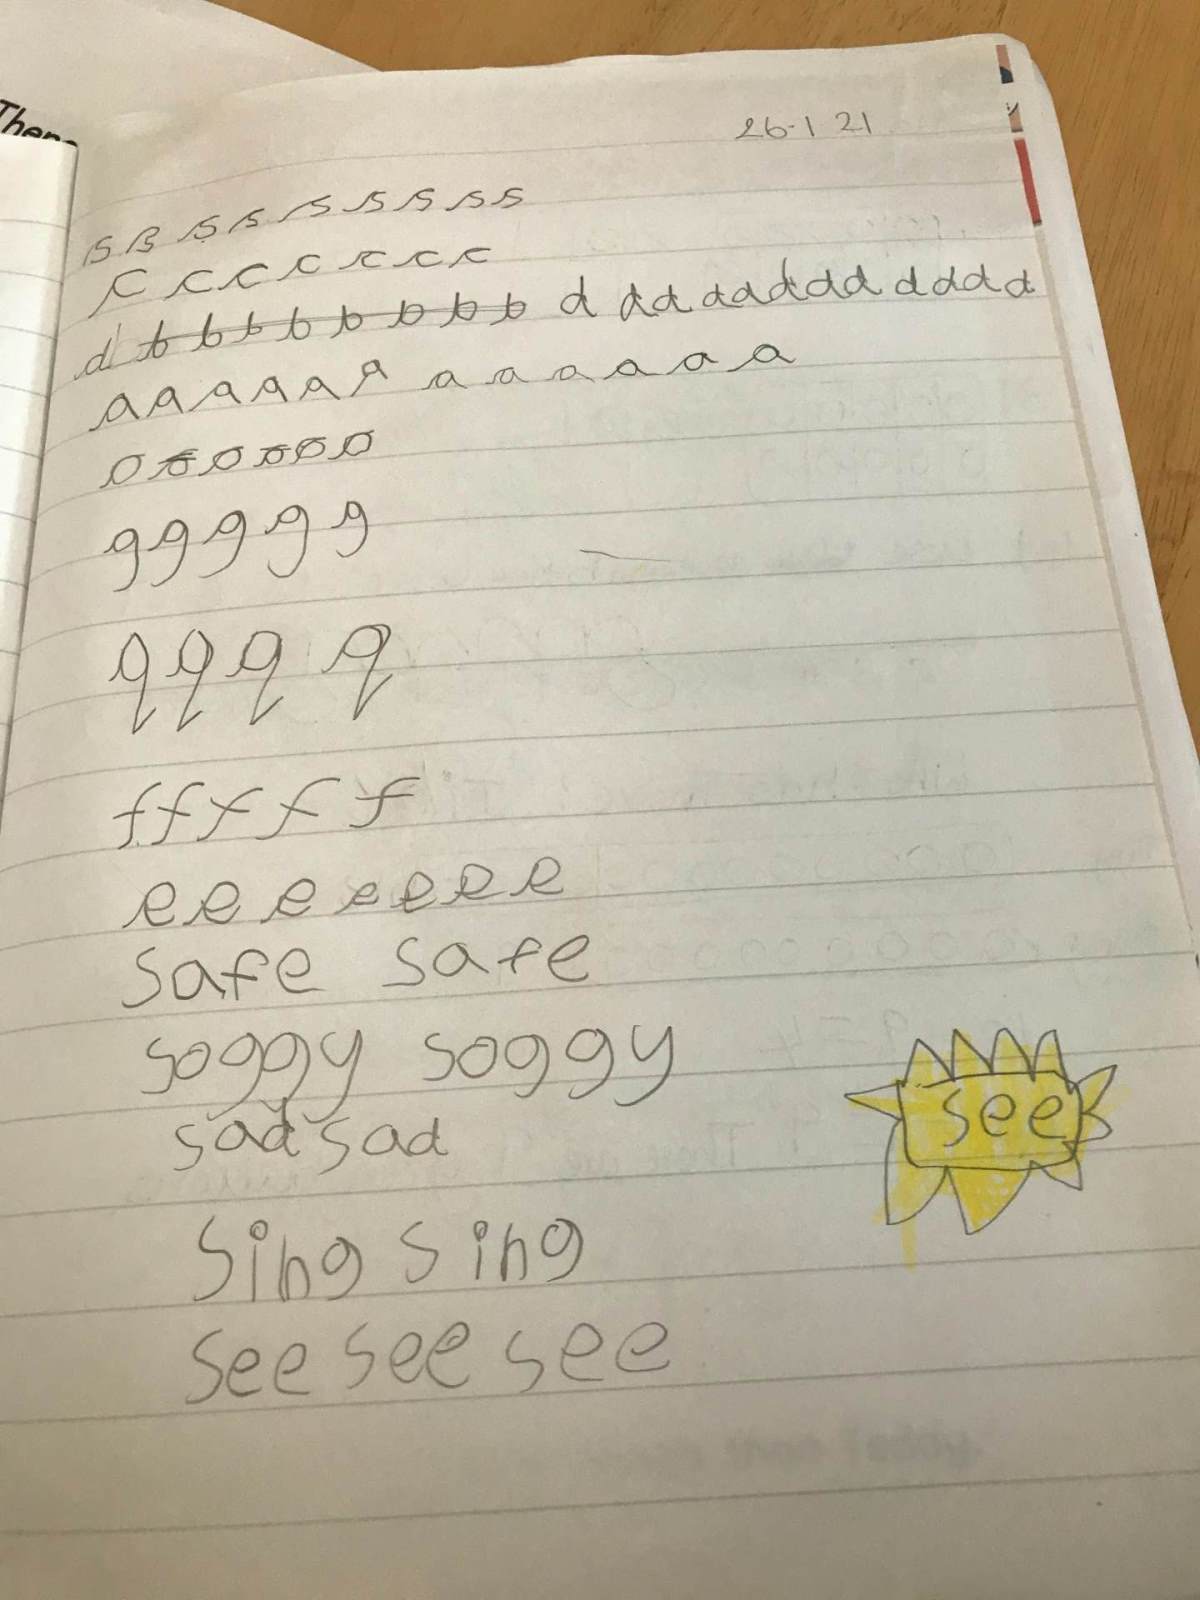 Then
26.1 21
s s s s s s s s s s
c c c c c c c
d b b b b b b b b d d d d d d d d d d d d d
a a a a a a a a a a a a
o o o o o o
g g g g g
q q q q
f f f f f
e e e e e e e
safe safe
soggy soggy
sad sad
see
sing sing
see see see